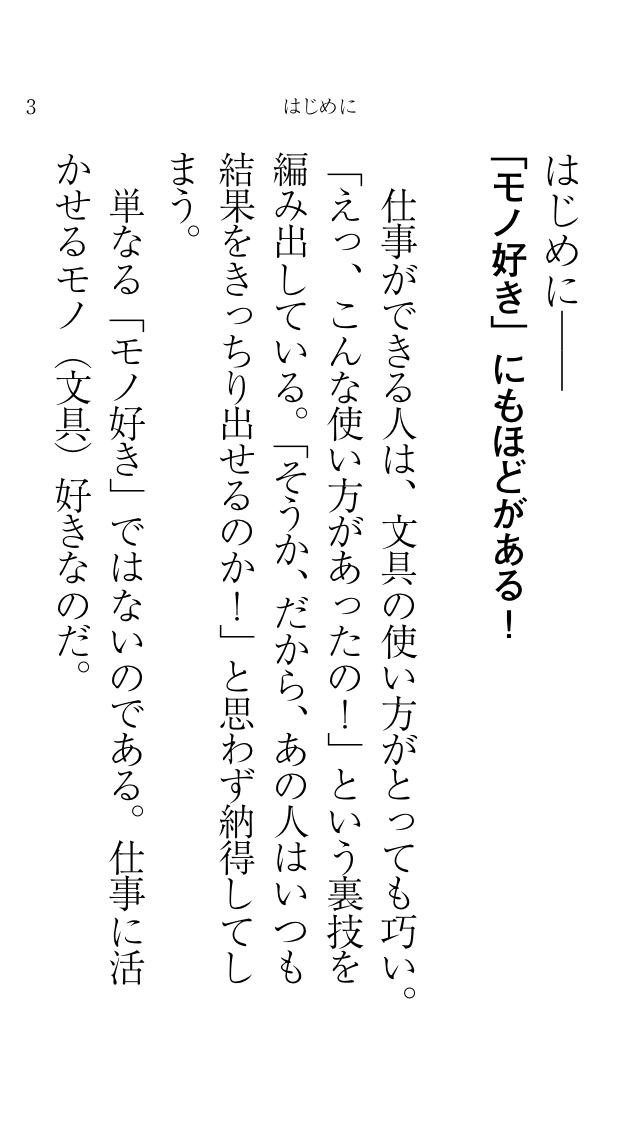 3
はじめに
はじめに――
「モノ好き」にもほどがある！
仕事ができる人は、文具の使い方がとっても巧い。
「えっ、こんな使い方があったの！」という裏技を
編み出している。「そうか、だから、あの人はいつも
結果をきっちり出せるのか！」と思わず納得してし
まう。
単なる「モノ好き」ではないのである。仕事に活
かせるモノ（文具）好きなのだ。